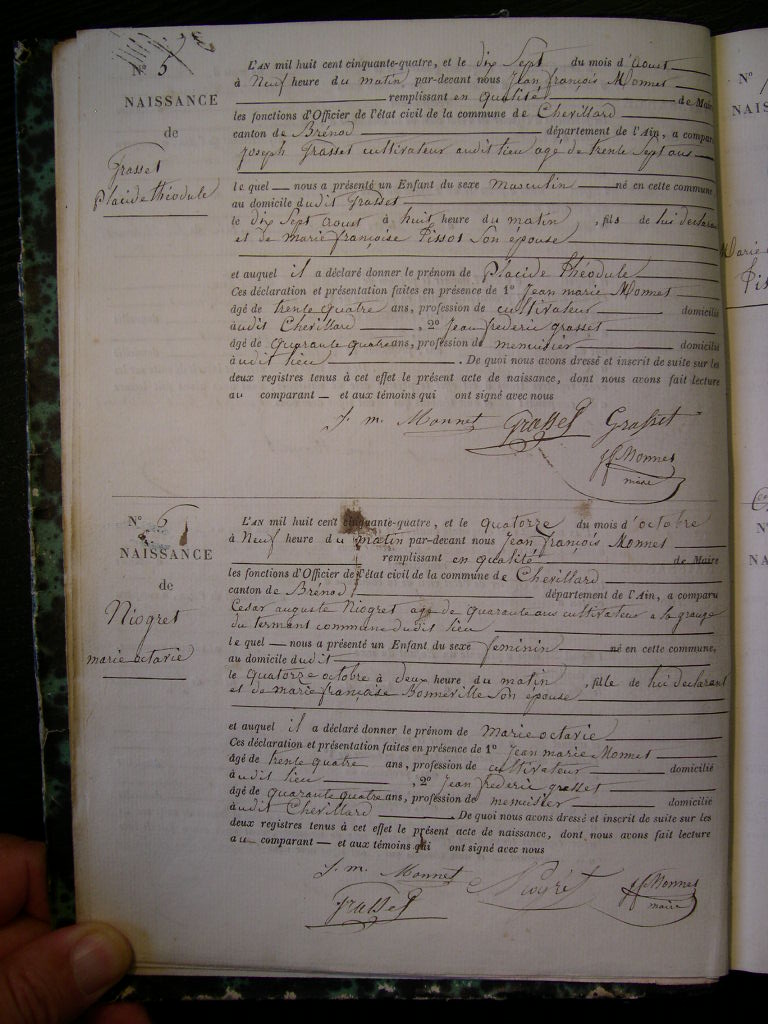 N° 5
NAISSANCE
de
Grasset
Placide théodule
L'AN mil huit cent cinquante-quatre, et le dix Sept du mois d'aoust
à Neuf heure du matin par-devant nous Jean françois Monnet
remplissant en qualité de Maire
les fonctions d'Officier de l'état civil de la commune de Chevillard
canton de Brénod département de l'Ain, a comparu
joseph Grasset cultivateur audit lieu agé de trente Sept ans
le quel nous a présenté un Enfant du sexe masculin né en cette commune
au domicile dudit Grasset
le dix Sept aoust à huit heure du matin, fils de lui déclarant
et de marie françoise Pissot Son épouse
et auquel il a déclaré donner le prénom de Placide théodule
Ces déclaration et présentation faites en présence de 1° Jean marie Monnet
âgé de trente quatre ans, profession de cultivateur domicilié
audit Chevillard, 2° Jean frederic grasset
âgé de quarante quatre ans, profession de menuisier domicilié
audit lieu. De quoi nous avons dressé et inscrit de suite sur les
deux registres tenus à cet effet le présent acte de naissance, dont nous avons fait lecture
au comparant et aux témoins qui ont signé avec nous
J. m. Monnet Grasset Grasset
jf Monnet
maire
N° 6
NAISSANCE
de
Niogret
marie octavie
L'AN mil huit cent cinquante-quatre, et le quatorze du mois d'octobre
à Neuf heure du matin par-devant nous Jean françois Monnet
remplissant en qualité de Maire
les fonctions d'Officier de l'état civil de la commune de Chevillard
canton de Brénod département de l'Ain, a comparu
Cesar auguste Niogret agé de quarante ans cultivateur a la grange
du commune dudit lieu
le quel nous a présenté un Enfant du sexe feminin né en cette commune,
au domicile dudit
le quatorze octobre à deux heure du matin, fille de lui declarant
et de marie françoise Bonneville Son épouse
et auquel il a déclaré donner le prénom de marie octavie
Ces déclaration et présentation faites en présence de 1° Jean marie Monnet
âgé de trente quatre ans, profession de cultivateur domicilié
audit lieu, 2° Jean frederic grasset
âgé de quarante quatre ans, profession de menuisier domicilié
audit Chevillard. De quoi nous avons dressé et inscrit de suite sur les
deux registres tenus à cet effet le présent acte de naissance, dont nous avons fait lecture
au comparant et aux témoins qui ont signé avec nous
J. m. Monnet Niogret jf Monnet
maire
Grasset